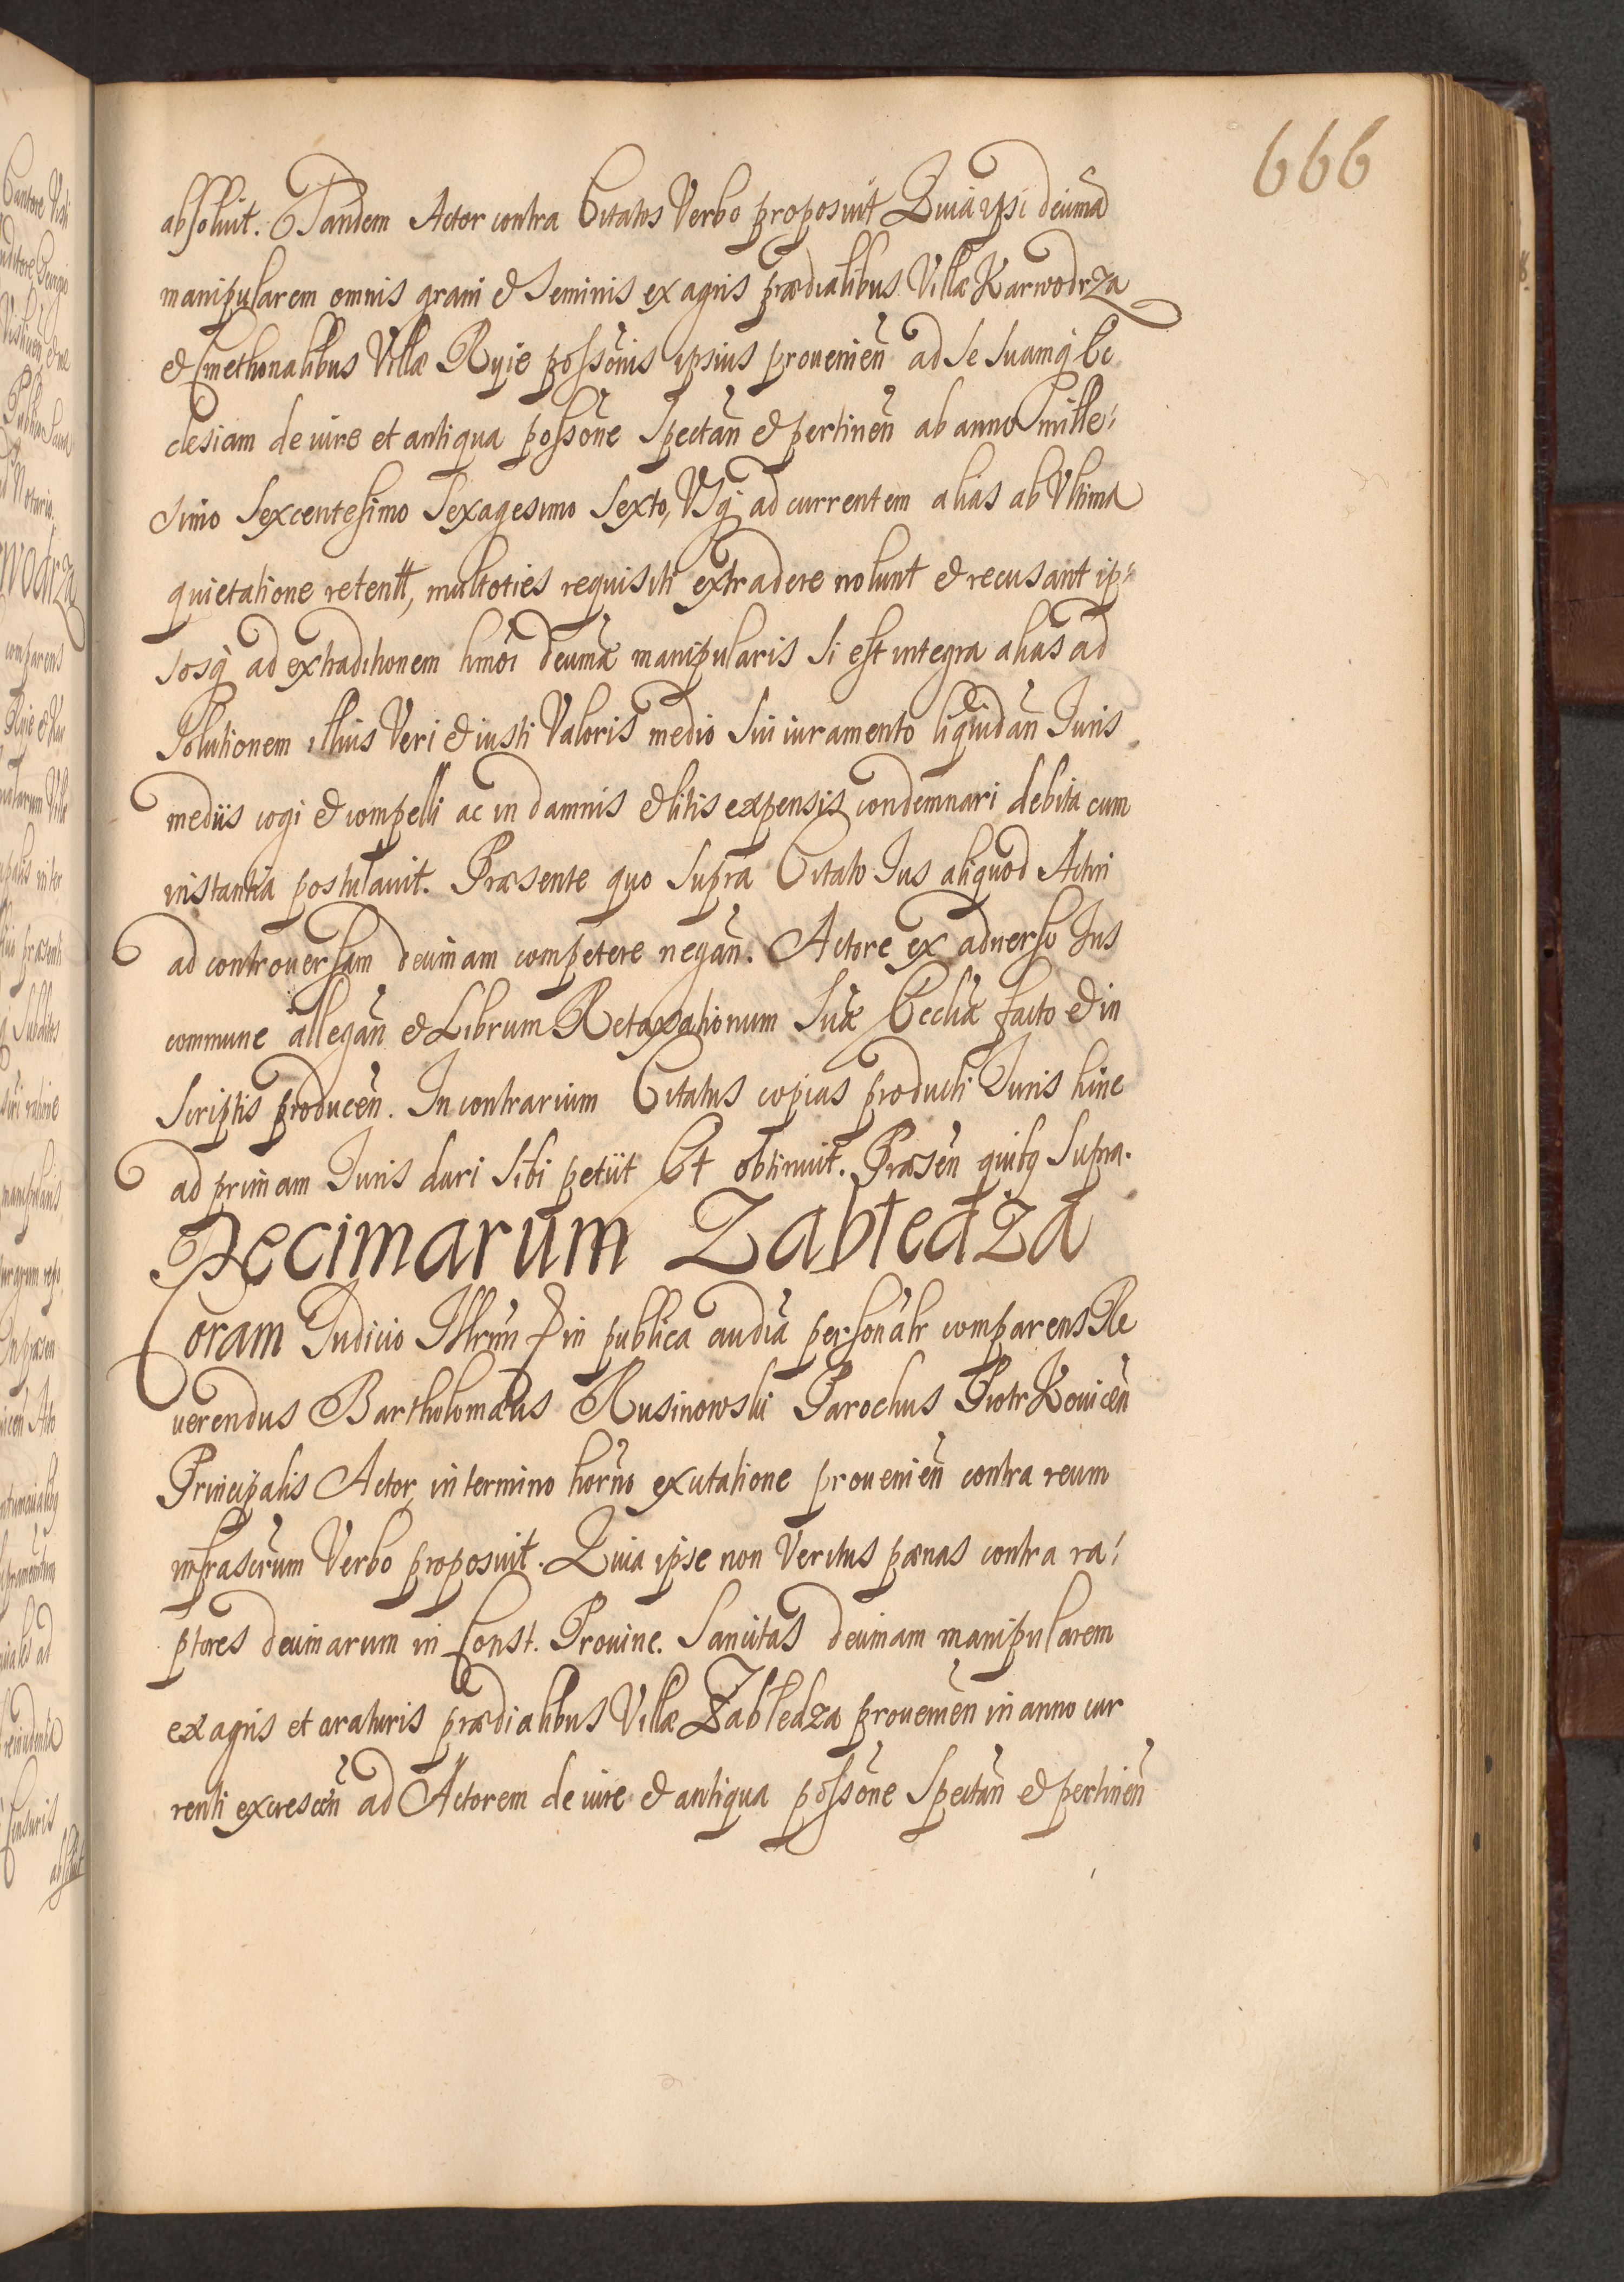 666
absoluit. Tandem Actor contra Citatos Verbo proposuit Quia ipsi decimã
manipularem omnis grani et Seminis ex agris prædialibus Villæ Karwodrza
et Cmethonalibus Villæ Ryie possõnis ipsius prouenieñ ad Se Suamq Ec
clesiam de iure et antiqua possõne Spectañ et pertineñ ab anno mille:
simo Sexcentesimo Sexagesimo Sexto, Vsq ad currentem alias ab Vltima
quietatione retentt, multoties requisiti extradere nolunt et recusant ip:
sosq ad extraditionem hmõi decimæ manipularis Si est integra alias ad
Solutionem illius Veri et iusti Valoris medio Sui iuramento liquidañ Iuris
mediis cogi et compelli ac in damnis et litis expensis condemnari debita cum
instantia postulauit. Præsente quo Supra Citato Ius aliquod Actri
ad controuersam decimam competere negañ. Actore ex aduerso Ius
commune allegañ et Librum Retaxationum Suæ Eccliæ facto et in
Scriptis produceñ. In contrarium Citatus copias producti Iuris hinc
ad primam Iuris dari Sibi petiit Et obtinuit. Præseñ quibq Supra.
Decimarum Zabłedza
Coram Iudicio Illrmi D in publica audia personalr comparens Re
uerendus Bartholomæus Rusinowski Parochus Piotrkouiceñ
Principalis Actor, in termino horno ex citatione prouenieñ contra reum
infrascrum Verbo proposuit. Quia ipse non Veritus pænas contra ra:
ptores decimarum in Const. Prouinc. Sancitas decimam manipularem
ex agris et araturis prædialibus Villæ Zabłedza prouenieñ in anno cur
renti excresceñ ad Actorem de iure et antiqua possõne Spectañ et pertineñ